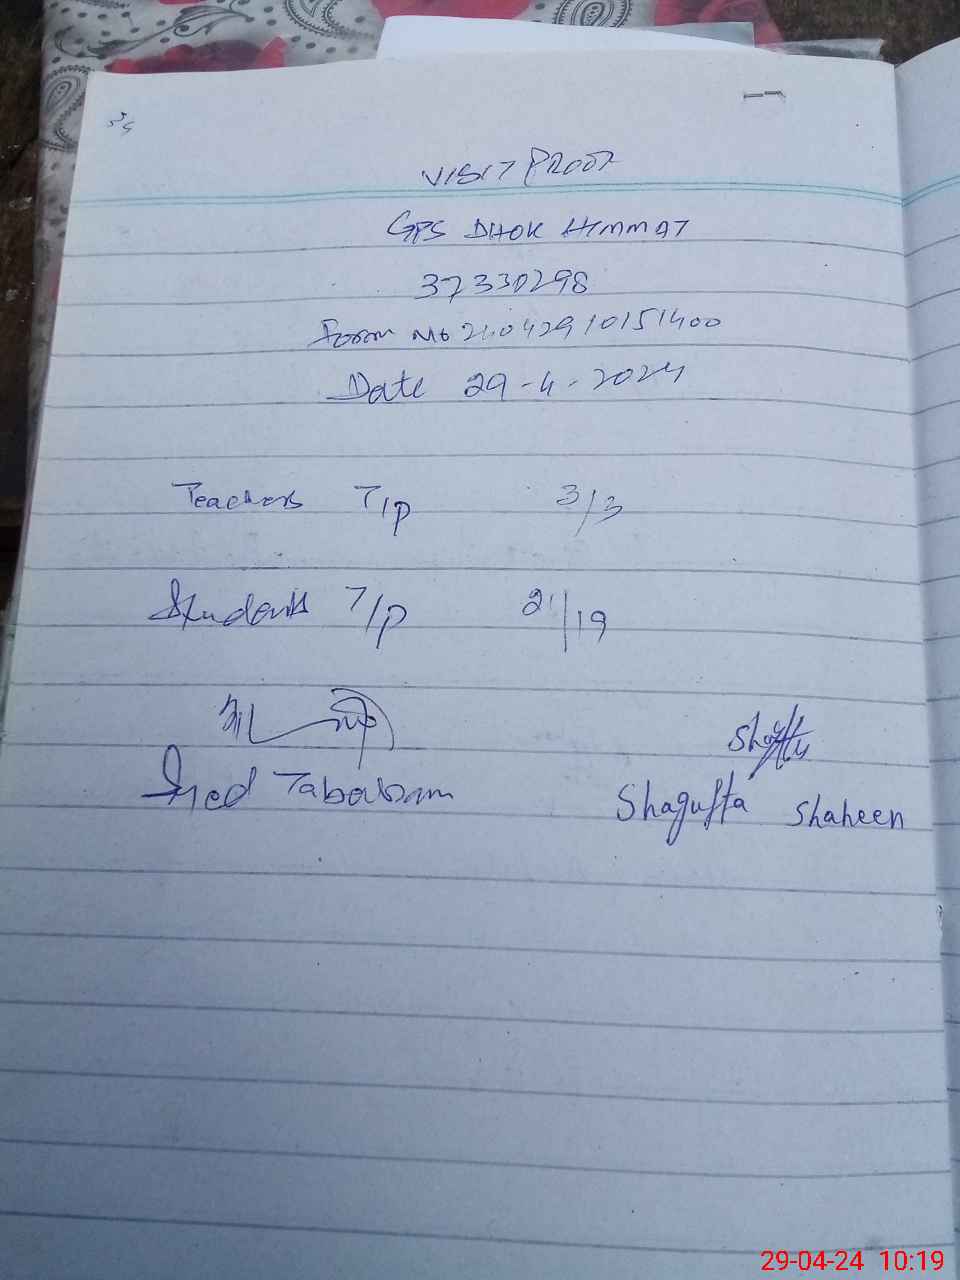 34
VISIT PROOF
GPS DHOK HIMMAT
37330298
Form No 240429 10151400
Date 29-4-2024
Teachers T/P 3/3
Students T/P 21/19
Shagufta Shaheen
29-04-24 10:19